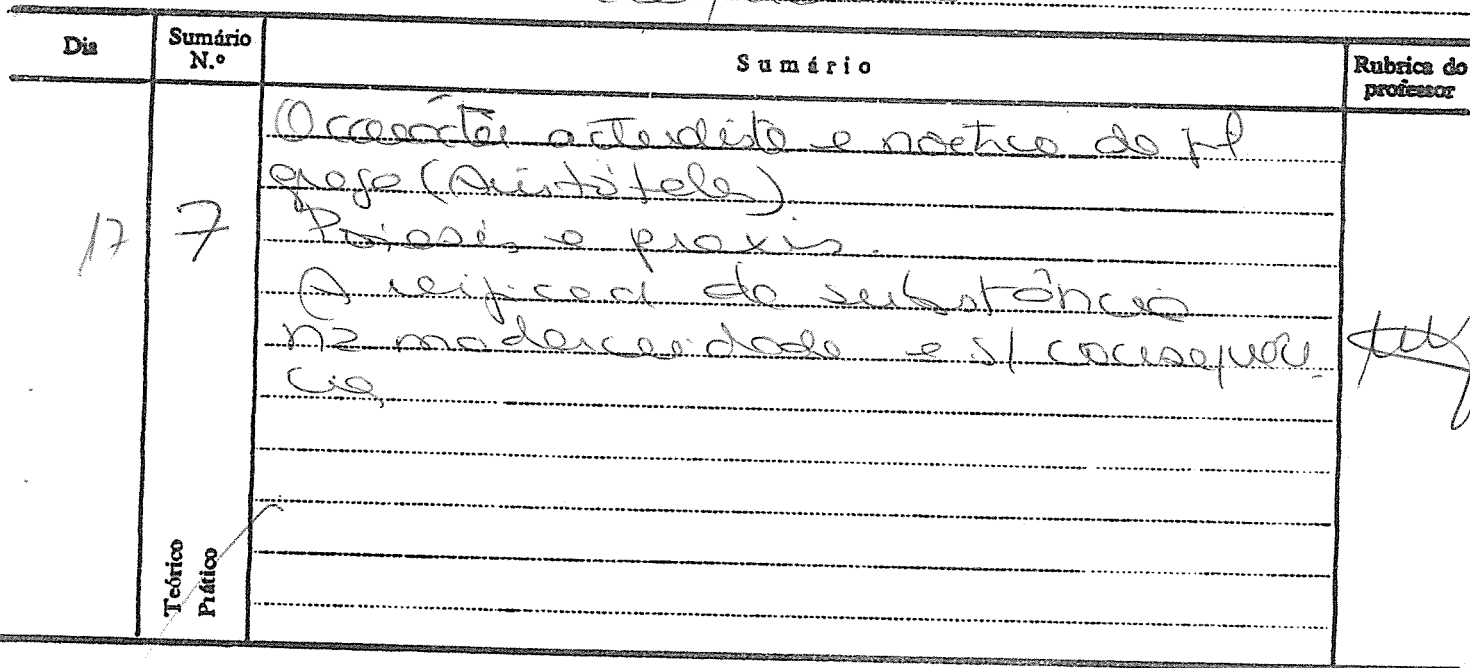 Dia
Sumário N.º
Sumário
Rubrica do professor
17
7
O carácter e noético do
grego (Aristóteles)
Poiesis e praxis.
A reificação da substância
na modernidade e s/ consequên-
cia,
Teórico
Prático